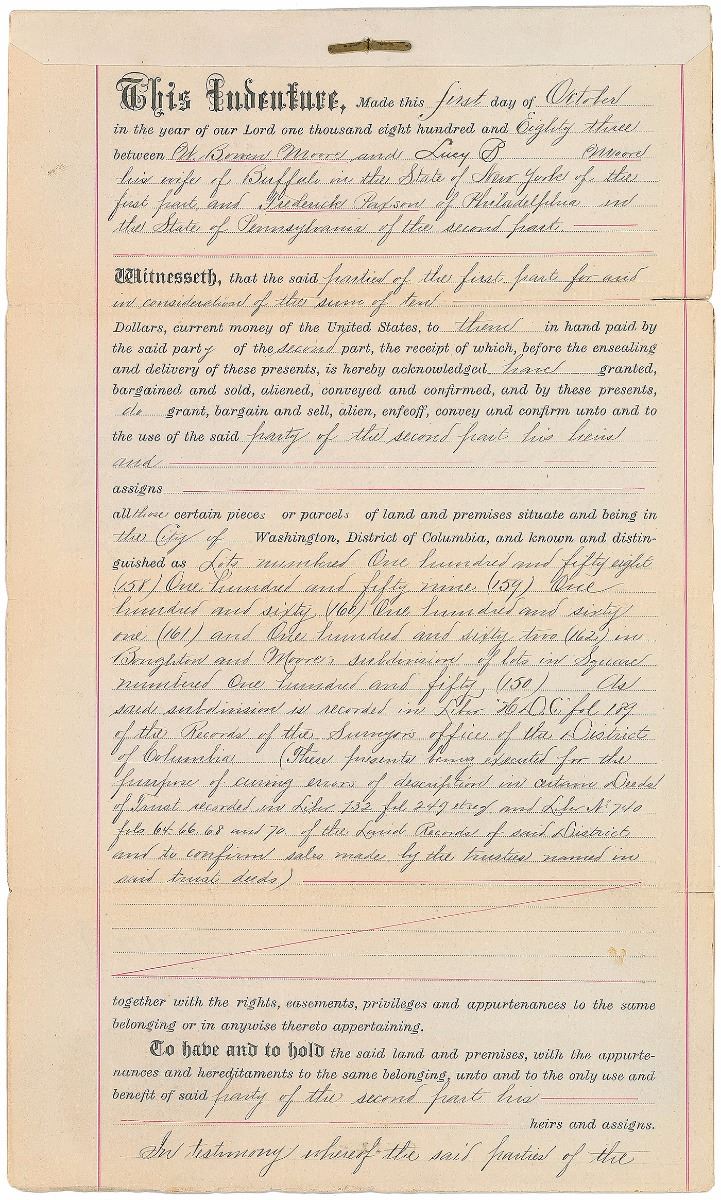 This Indenture, Made this first day of October
in the year of our Lord one thousand eight hundred and Eighty three
between W. Bowen Moore and Lucy P Moore
his wife of Buffalo in the State of New York of the
first part and Frederick Paxson of Philadelphia in
the State of Pennsylvania of the second part
Witnesseth, that the said parties of the first part for and
in consideration of the sum of ten
Dollars, current money of the United States, to them in hand paid by
the said party of the second part, the receipt of which, before the ensealing
and delivery of these presents, is hereby acknowledged have granted,
bargained and sold, aliened, conveyed and confirmed, and by these presents,
do grant, bargain and sell, alien, enfeoff, convey and confirm unto and to
the use of the said party of the second part his heirs
and
assigns
all those certain pieces or parcels of land and premises situate and being in
the City of Washington, District of Columbia, and known and distin-
guished as Lots numbered One hundred and fifty eight
(158) One hundred and fifty nine (159) One
hundred and sixty (160) One hundred and sixty
one (161) and One hundred and sixty two (162) in
Boughton and Moore's subdivision of lots in Square
numbered One hundred and fifty (150) As
said subdivision is recorded in Liber H.D.C. fol 189
of the Records of the Surveyors office of the District
of Columbia (These presents being executed for the
purpose of curing errors of description in certain Deeds
of Trust recorded in Liber 732 fol 249 et seq and Liber No 740
fols 64. 66. 68 and 70. of the Land Records of said District
and to confirm sales made by the trustees named in
said trust deeds)
together with the rights, easements, privileges and appurtenances to the same
belonging or in anywise thereto appertaining.
To have and to hold the said land and premises, with the appurte-
nances and hereditaments to the same belonging, unto and to the only use and
benefit of said party of the second part his
heirs and assigns.
In testimony whereof the said parties of the